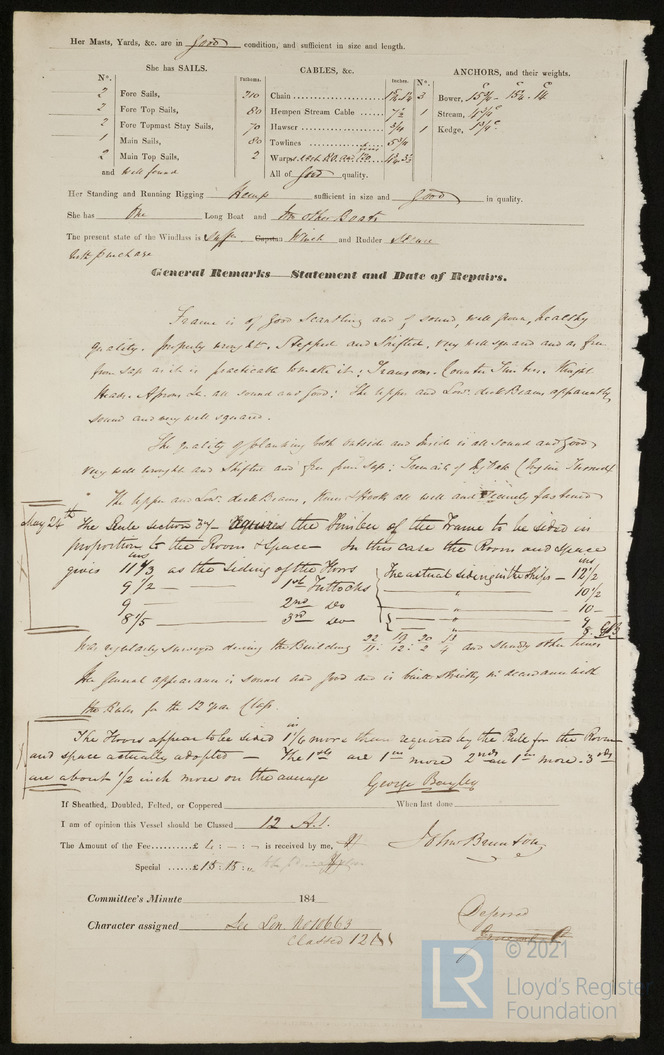 Her Masts, Yards, &c. are in good condition, and sufficient in size and length.
She has SAILS.
CABLES, &c.
ANCHORS, and their weights.
N°.
Fathoms.
Inches.
N°.
2 Fore Sails, 210 Chain 3 Bower,
2 Fore Top Sails, 80 Hempen Stream Cable 7½ 1 Stream,
2 Fore Topmast Stay Sails, 70 Hawser 1 Kedge,
1 Main Sails, 80 Towlines
2 Main Top Sails, 2 Warps
and well found All of good quality.
Her Standing and Running Rigging Hemp sufficient in size and good in quality.
She has One Long Boat and other Boats
The present state of the Windlass is Capstan Winch and Rudder
with purchase
General Remarks Statement and Date of Repairs.
Frame is of good Scantling and of sound, well grown, healthy
quality. properly wrought. Stepped and Shifted. very well squared and as free
from sap as it is practicable to make it: Transoms. Counter Timbers. Knight
Heads. Aprons &c. all sound and good: The upper and Lowr. deck Beams apparently
sound and very well squared.
The quality of planking both outside and Inside is all sound and good
very well wrought and Shifted and free from Sap: Treenails of Engine Turned
" The upper and Lowr. deck Beams, Knees & Hooks all well and fastened
May 24th The Rule section 37 - requires the Timber of the Frame to be sided in
proportion to the Room & Space - In this case the Room and space
gives 11 4/3 ins as the siding of the Floors The actual siding in the Ship is - 12½ ins
9½ — 1st Futtocks — " — 10½
9 — 2nd do — " — 10
8 4/5 — 3rd do — " — 9
Was regularly surveyed during the Building and sundry other times
Her General appearance is sound and good and is built strictly in accordance with
the Rules for the 12 year Class.
The Floors appear to be sided 1 1/6 in more than required by the Rule for the Room
and space actually adopted - The 1sts are 1 in more 2nds are 1 in more - 3rds
are about ½ inch more on the average
George Bayley
If Sheathed, Doubled, Felted, or Coppered When last done
I am of opinion this Vessel should be Classed 12 A.1.
The Amount of the Fee £ is received by me,
John Brunton
Special £15:15:"
Committee's Minute 184
Character assigned See Lon. No 10663
Classed 12 A1
Deferred
© 2021
LR
Lloyd's Register
Foundation